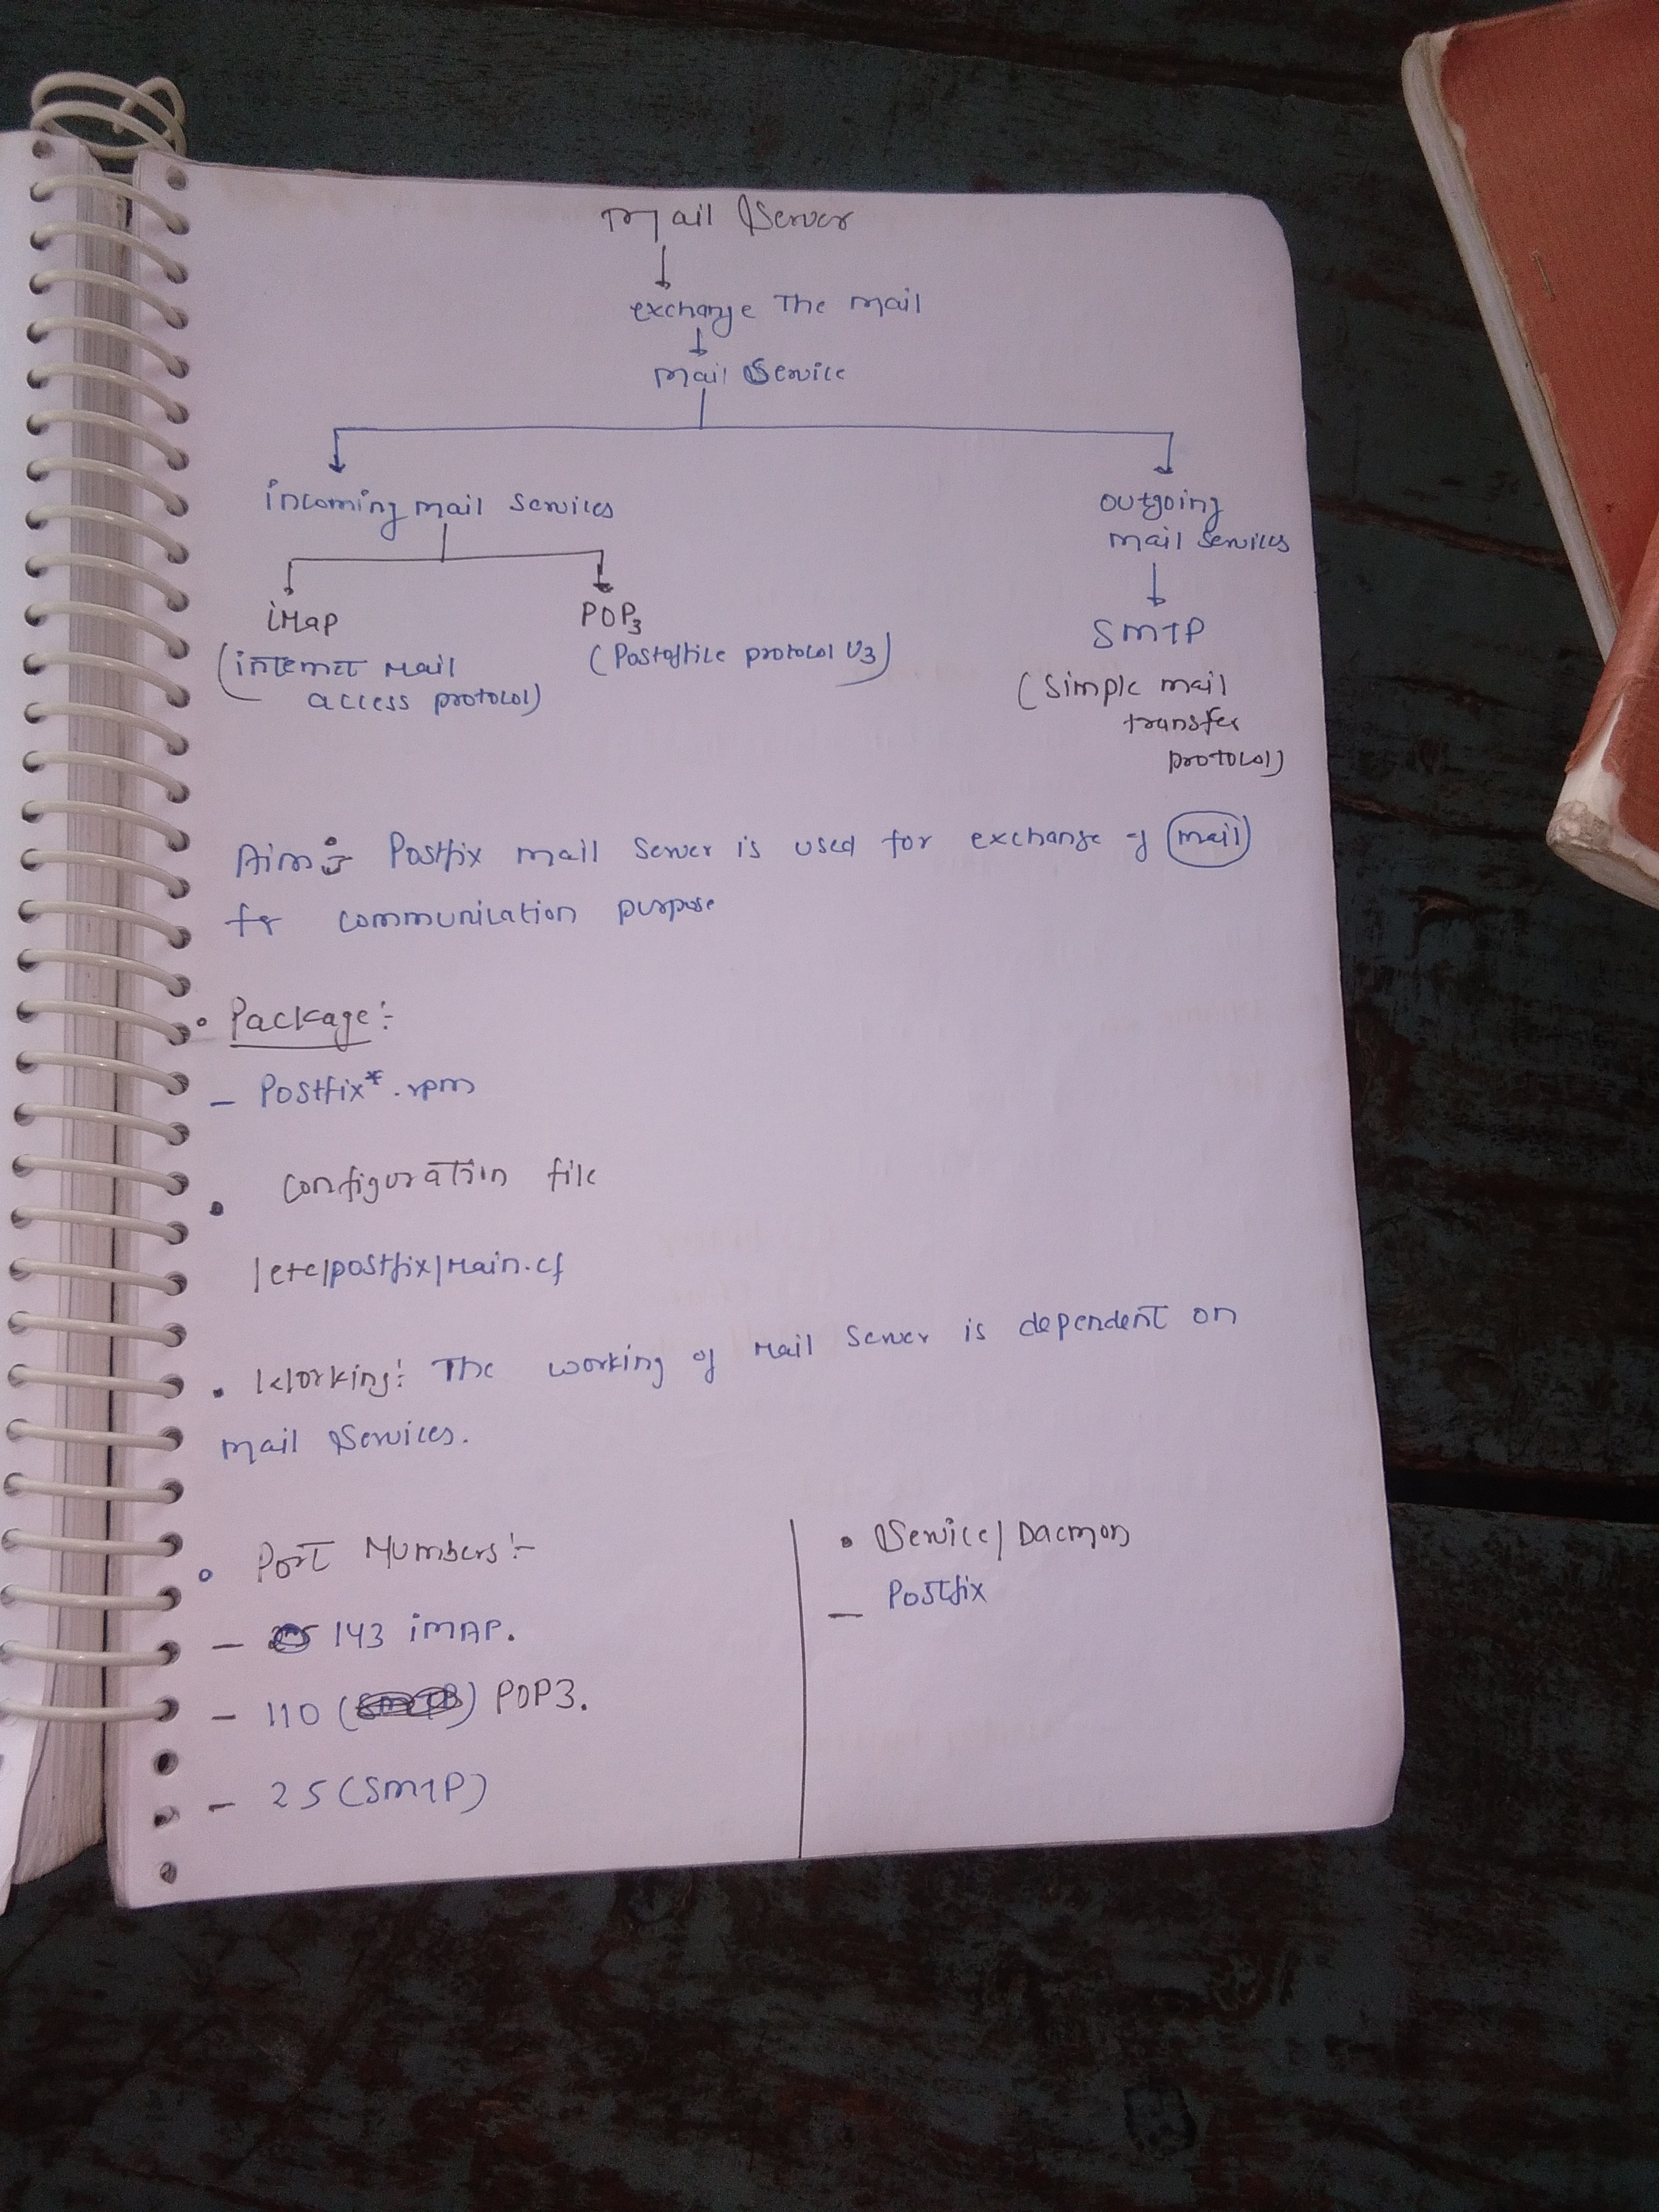 Mail Server
exchange The mail
mail Service
incoming mail services
outgoing
mail services
iMap
POP3
SMTP
(internet Mail
access protocol)
(Postoffice protocol V3)
(Simple mail
transfer
protocol)
Aim :- Postfix mail server is used for exchange of mail
for communication purpose
• Package :-
- Postfix*.rpm
• Configuration file
/etc/postfix/Main.cf
• Working: The working of Mail Server is dependent on
mail services.
• Port Numbers :-
- 143 iMAP.
- 110 ( ) POP3.
- 25 (SMTP)
• Service/Daemon
- Postfix